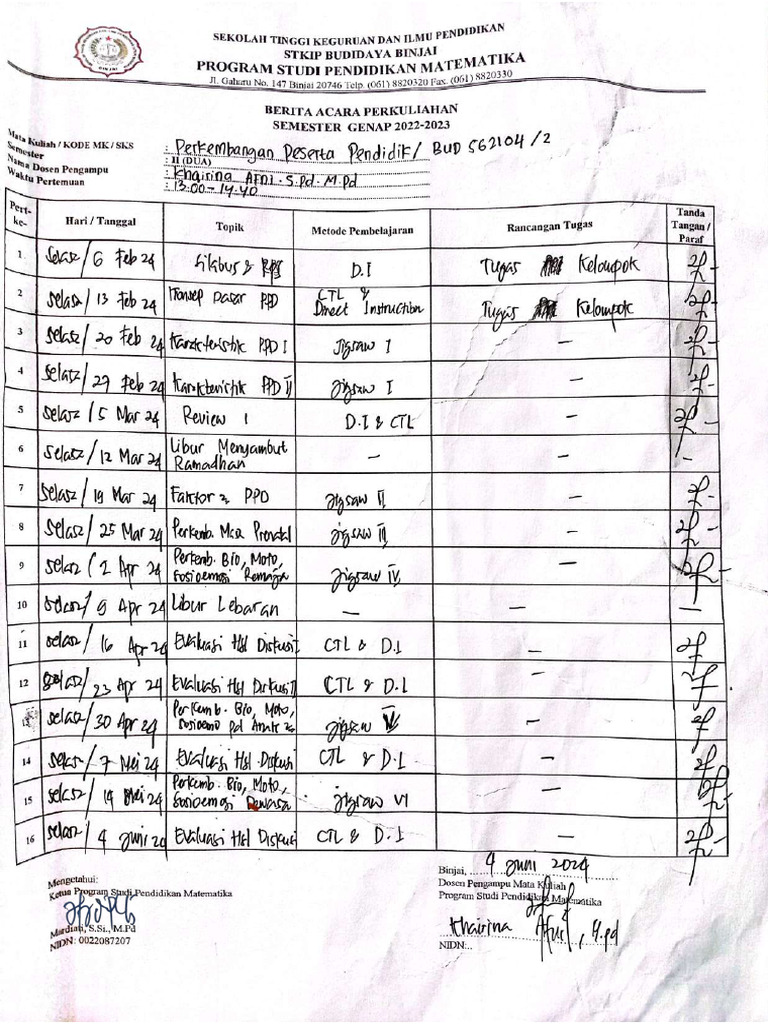 SEKOLAH TINGGI KEGURUAN DAN ILMU PENDIDIKAN
STKIP BUDIDAYA BINJAI
PROGRAM STUDI PENDIDIKAN MATEMATIKA
Jl. Gaharu No. 147 Binjai 20746 Telp. (061) 8820320 Fax. (061) 8820330
BERITA ACARA PERKULIAHAN
SEMESTER GENAP 2022-2023
Mata Kuliah / KODE MK / SKS : Perkembangan Peserta Pendidik / BUD 562104 / 2
Semester : II (DUA)
Nama Dosen Pengampu : Khairina AFNI. S.Pd. M.Pd
Waktu Pertemuan : 13.00 - 14.40
Pert-ke- Hari / Tanggal Topik Metode Pembelajaran Rancangan Tugas Tanda Tangan / Paraf
1. Selasa / 6 Feb 24 Silabus & RPS D.I Tugas Kelompok
2 Selasa / 13 Feb 24 Konsep Dasar PPD CTL & Direct Instruction Tugas Kelompok
3 Selasa / 20 Feb 24 Karakteristik PPD I Jigsaw I –
4 Selasa / 27 Feb 24 Karakteristik PPD II Jigsaw I –
5 Selasa / 5 Mar 24 Review 1 D.I & CTL –
6 Selasa / 12 Mar 24 Libur Menyambut Ramadhan – – –
7 Selasa / 19 Mar 24 Faktor 2 PPD Jigsaw II –
8 Selasa / 25 Mar 24 Perkemb. Masa Prenatal Jigsaw III –
9 Selasa / 2 Apr 24 Perkemb. Bio, Moto, Sosioemosi Remaja Jigsaw IV –
10 Selasa / 9 Apr 24 Libur Lebaran – – –
11 Selasa / 16 Apr 24 Evaluasi Hsl Diskusi I CTL & D.I –
12 Selasa / 23 Apr 24 Evaluasi Hsl Diskusi II CTL & D.I –
13 Selasa / 30 Apr 24 Perkemb. Bio, Moto, Sosioemo pd Anak 2 Jigsaw V –
14 Selasa / 7 Mei 24 Evaluasi Hsl Diskusi CTL & D.I –
15 Selasa / 14 Mei 24 Perkemb. Bio, Moto, Sosioemosi Dewasa Jigsaw VI –
16 Selasa / 4 Juni 24 Evaluasi Hsl Diskusi CTL & D.I –
Mengetahui:
Ketua Program Studi Pendidikan Matematika
Mardiati, S.Si., M.Pd
NIDN: 0022087207
Binjai, 4 Juni 2024
Dosen Pengampu Mata Kuliah
Program Studi Pendidikan Matematika
Khairina Afni, M.Pd
NIDN:..